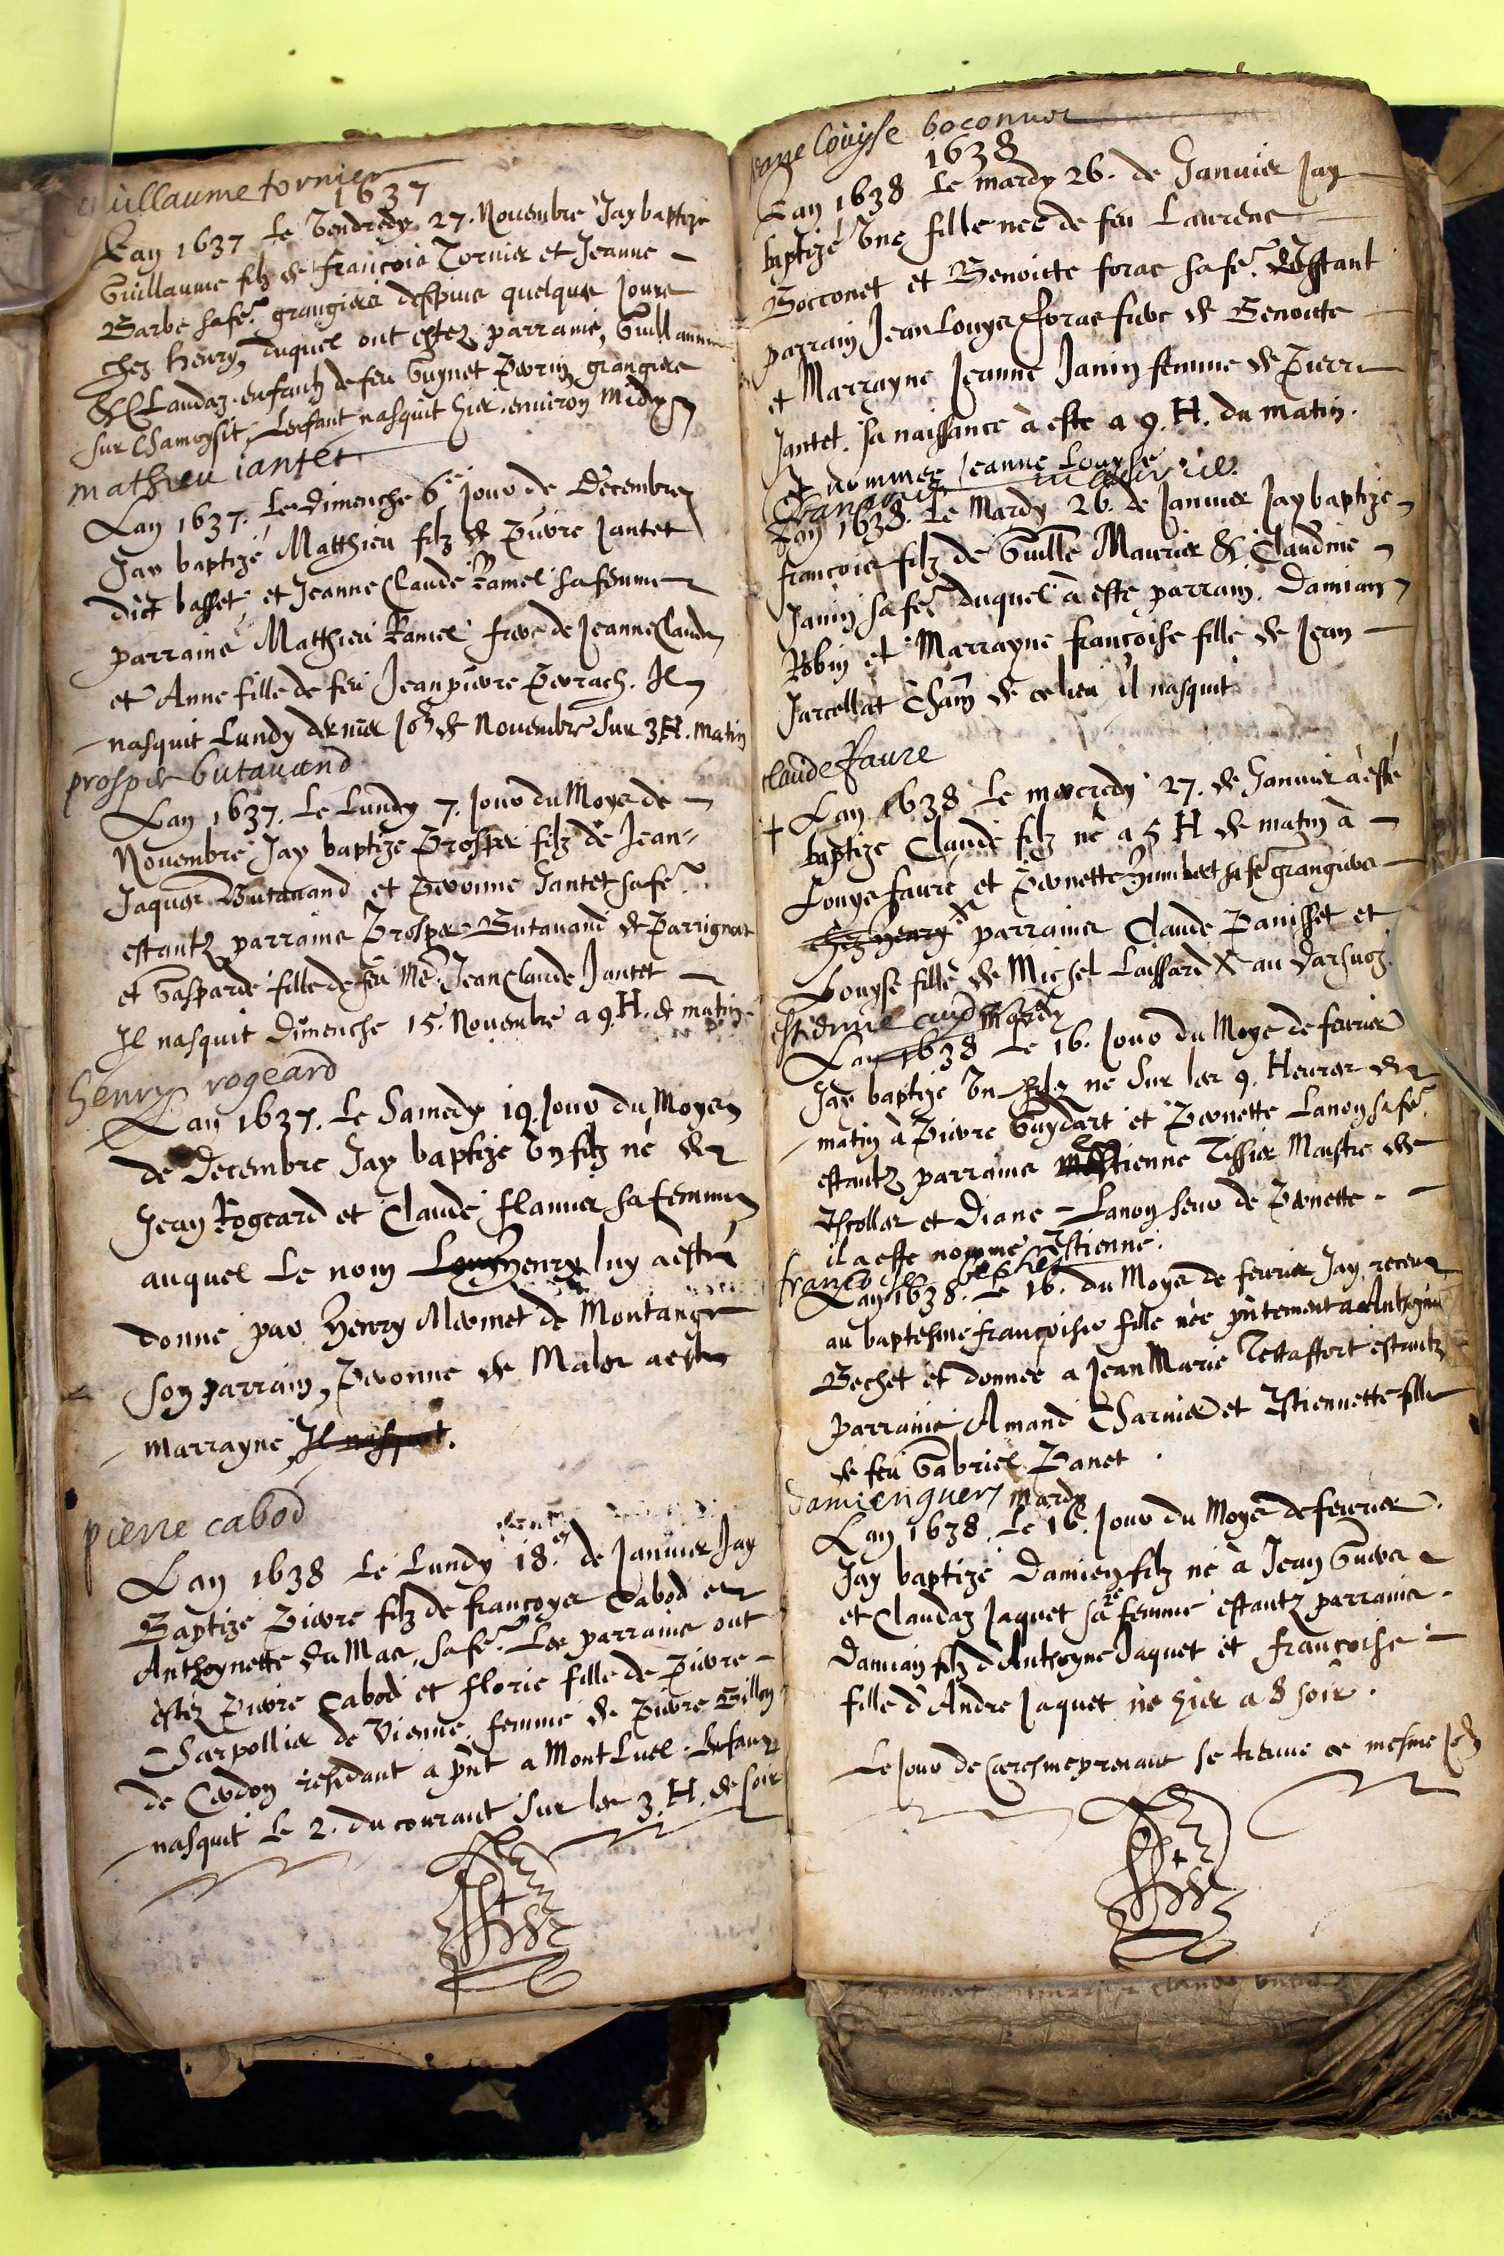 Guillaume tornier
1637
Lan 1637 Le Vendredy 27. Novembre Jay baptize
Guillaume filz de François Tornier et Jeanne
Barbe sa fe. grangiers despuis quelques jours
chez Henry, duquel ont estez parrains, Guillaume
& Claudaz enfantz de feu Guynet Perrin grangiers
sur Chamoysit, Lenfant nasquit hier environ midy
mathieu iantet
Lan 1637. Le Dimenche 6e jour de Décembre
Jay baptizé Matthieu filz de Pierre Jantet
dict basset, et Jeanne Claude Ramel sa femme
parrains Matthieu Ramel frere de Jeanne Claude
et Anne fille de feu Jean pierre Perrach. Il
nasquit Lundy dernier de Novembre sur 3 H. matin
prosper butavand
Lan 1637. Le Lundy 7. jour du Moys de
Novembre Jay baptize Prosper filz de Jean
Jaques Butavand et Pernonne Jantet sa fe.
estantz parrains Prosper Butavand de Parrignat
et Gasparde fille de feu Me Jean Claude Jantet
Il nasquit Dimenche 15. Novembre a 9. H. de matin
henry rogeard
Lan 1637. Le Samedy 19. Jour du Moys
de Decembre Jay baptize Un filz né de
Jean Rogeard et Claude flamier sa femme
auquel Le nom Henry luy a esté
donné par Henry Mermet de Montange
son parrain, Pernonne de Males a esté
marrayne, Il nasquit.
pierre cabod
Lan 1638 Le Lundy 18. de Janvier Jay
Baptizé Pierre filz de françoys Cabod et
Anthoynette Du Mas, sa fe. Les parrains ont
estéz Pierre Cabod et florie fille de Pierre
Charpollier de Vienne, femme de Pierre Billon
de Cerdon résidant a pnt a Mont Luel. Lenfant
nasquit Le 2. du courant sur les 3. H. de soir
Jeanne Louyse boconnet
1638
Lan 1638 Le mardy 26. de Janvier Jay
baptizé Une fille née de feu Laurens
Bocconet et Benoitte foras sa fe. Estant
parrain Jean Louys foras frere de Benoitte
et Marrayne Jeanne Janin femme de Pierre
Jantet. Sa naissance à esté a 9. H. du matin.
Et nommée Jeanne Louyse
Lan 1638. Le Mardy 26. de Janvier Jay baptizé
françois filz de Guille Maurier & Claudine
Janin sa fe. duquel à este parrain. Damian
Robin et Marrayne françoise fille de Jean
Jarcellat Cham de ce lieu il nasquit
claude faure
+ Lan 1638 Le mercredy 27. de Janvier à esté
baptizé Claude filz né a 5 H de matin à
Louys faure et Pernette Humbert sa fe grangiers
chez Henry parrains Claude Panisset et
Louyse fille de Michel Laissard
Mardy
Lan 1638 Le 16. jour du Moys de fevrier
Jay baptizé Un filz né sur les 9. Heures de
matin à Pierre Guydart et Pernette Lanon sa fe.
estantz parrains Estienne Tissier Maistre de
Escolles et Diane Lanon seur de Pernette.
il a esté nommé Estienne.
Lan 1638. Le 16. du Moys de fevrier Jay receu
au baptesme françoise fille née pntement a Anthoyne
Bechet et donnée a Jean Marie Tettaffort estantz
parrains Amand Charnier et Estiennette fille
de feu Gabriel Panet.
damien guers mardy
Lan 1638. Le 16. jour du Moys de fevrier.
Jay baptizé Damien filz né à Jean Guers
et Claudaz Jaquet sa femme estantz parrains.
Damian filz d'Anthoyne Jaquet et françoise
fille d'André Jaquet né hier a 8 soir.
Le jour de Caresmeprenant se treuve ce mesme jo